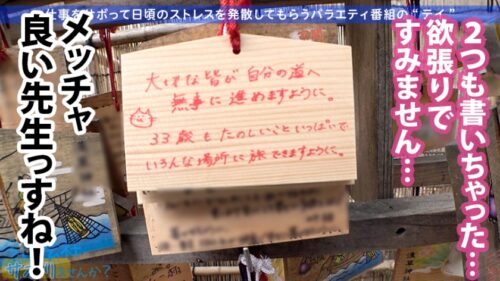 仕事をサボって日頃のストレスを発散してもらうバラエティ番組の"テイ"
2つも書いちゃった…
欲張りで
すみません…
大切な皆が自分の道へ
無事に進めますように。
33歳もたのしいこといっぱいで
いろんな場所に旅できますように。
メッチャ
良い先生っすね!
ませんか?